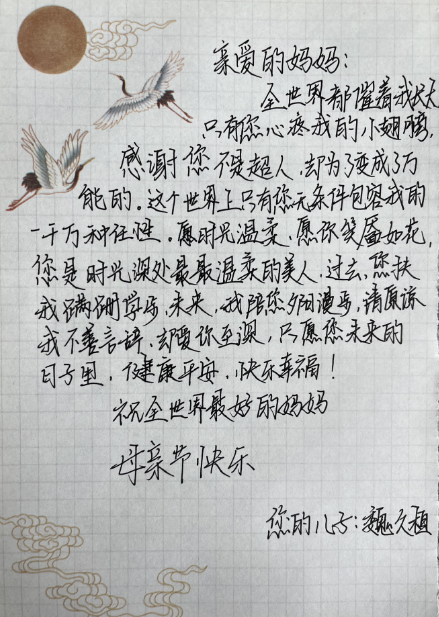 亲爱的妈妈：
全世界都催着我长大
只有您心疼我的小翅膀，
感谢您不是超人，却为了我变成了万
能的。这个世界上只有您无条件包容我的
一千万种任性。愿时光温柔，愿你笑靥如花，
您是时光深处最最温柔的美人，过去，您扶
我蹒跚学步，未来，我陪您夕阳漫步，请原谅
我不善言辞，却爱你至深，只愿您未来的
日子里，健康平安，快乐幸福！
祝全世界最好的妈妈
母亲节快乐
您的儿子：魏